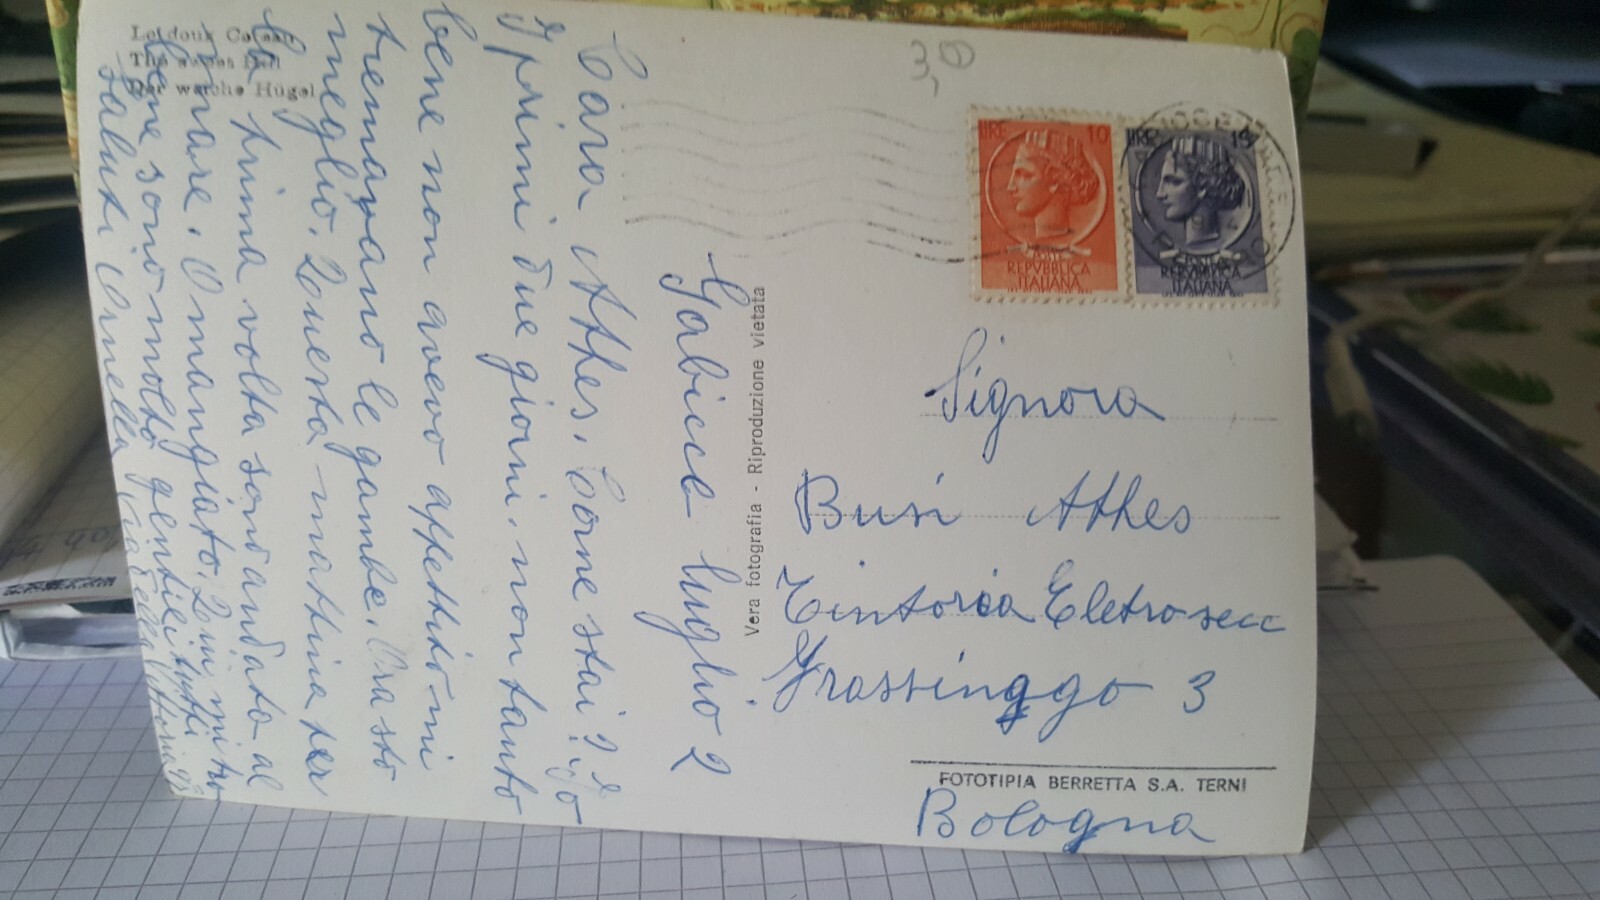 Le doux Coteau
The Hill
Der weiche Hügel
Gabicce luglio 2
Cara Athes. Come stai? Io
I primi due giorni, non tanto
bene non avevo appettito mi
tremavano le gambe. Ora sto
meglio. Questa mattina per
la prima volta sono andata al
mare. O mangiato. Qui mi tro
bene sono molto gentili tutti
saluti Ornella
Vera fotografia - Riproduzione vietata
3,0
LIRE 10
POSTE
REPVBBLICA
ITALIANA
LIRE 15
REPVBBLICA
ITALIANA
Signora
Busi Athes
Tintoria Eletrosecc
Frassinggo 3
Bologna
FOTOTIPIA BERRETTA S.A. TERNI